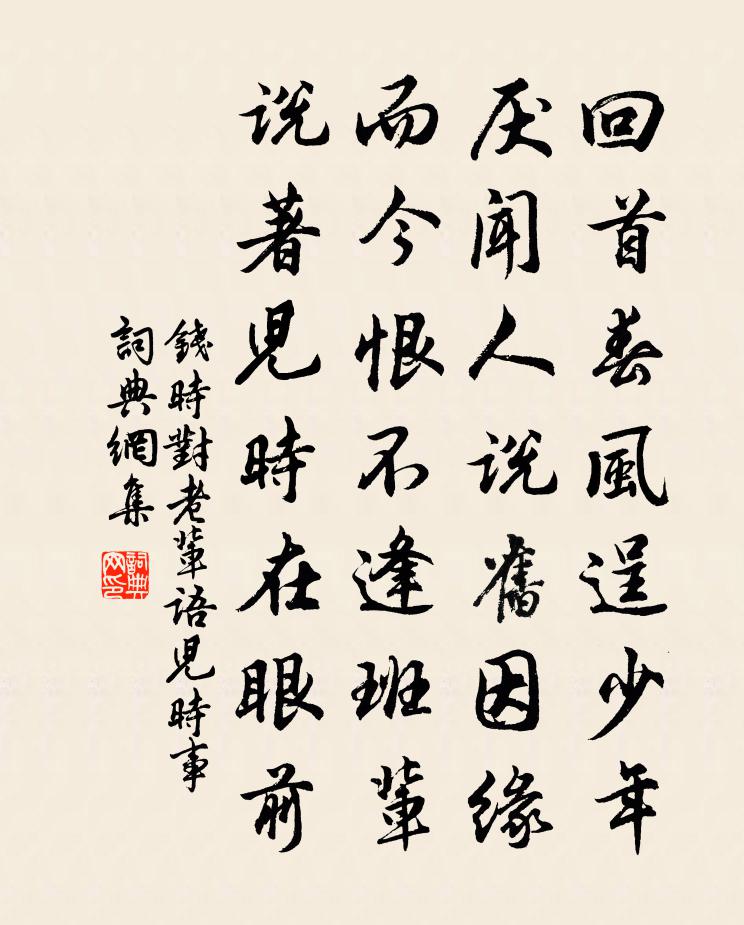 回首春風逞少年
厌聞人说舊因緣
而今恨不逢班輩
说著児時在眼前
錢時對老輩語児時事
詞典網集
詞典網印